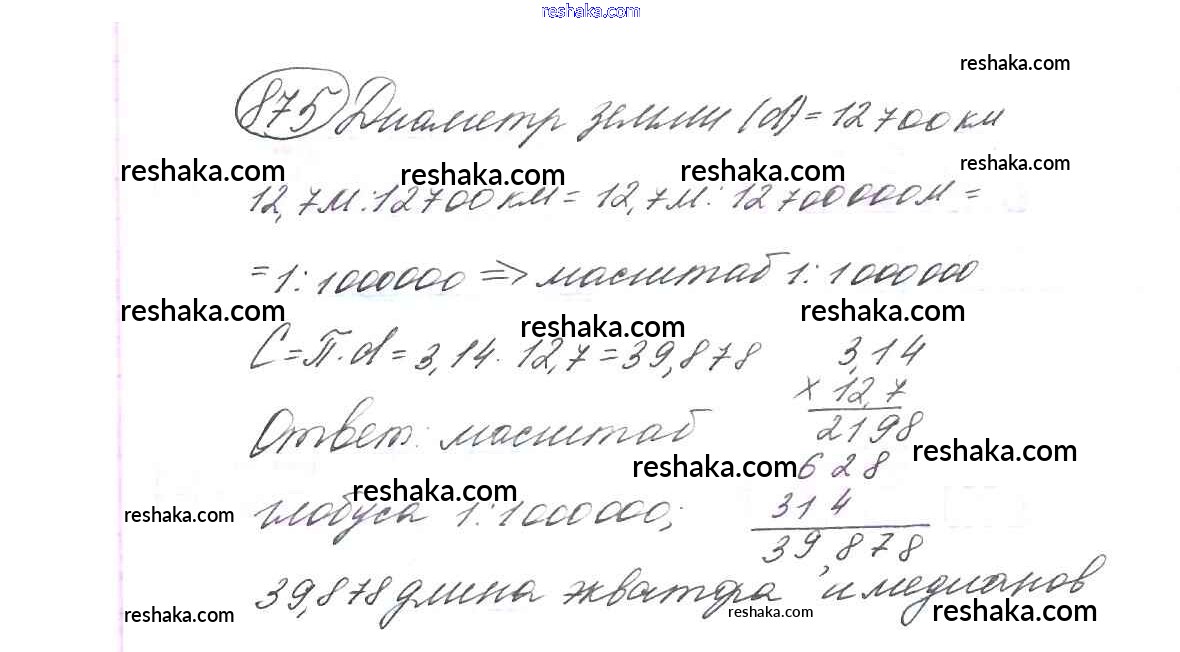 reshaka.com
reshaka.com
875 Диаметр земли (d) = 12 700 км
reshaka.com reshaka.com reshaka.com reshaka.com
12,7м : 12700 км = 12,7м : 12700000м =
= 1 : 1000000 => масштаб 1 : 1000000
reshaka.com reshaka.com reshaka.com
C = П · d = 3,14 · 12,7 = 39,878
3,14
× 12,7
2198
628
314
39,878
Ответ: масштаб
reshaka.com reshaka.com
глобуса 1 : 1000000;
reshaka.com reshaka.com
39,878 длина экватора и медианов
reshaka.com reshaka.com reshaka.com